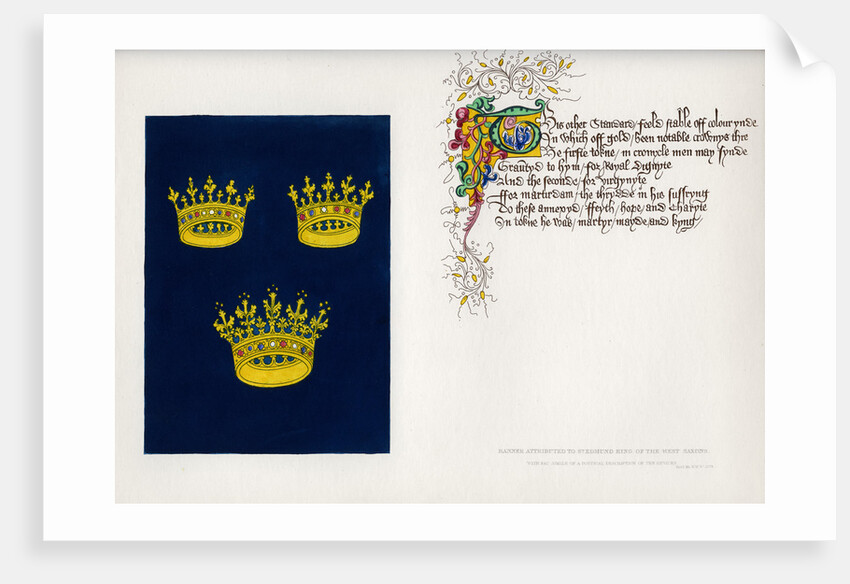 This other Standard / feeld stable off colour ynde
In which off gold / been notable crownys thre
The firste tokne / in cronycle men may fynde
Grauntyd to hym / for Royal Dignyte
And the seconde / for virgynyte
ffor martirdam / the thrydde in his suffryng
To these annexyd / ffeyth / hope / and Charyte
In tokne he was / martyr / mayde / and kyng
BANNER ATTRIBUTED TO ST EDMUND KING OF THE WEST SAXONS.
WITH FAC-SIMILE OF A POETICAL DESCRIPTION OF THE